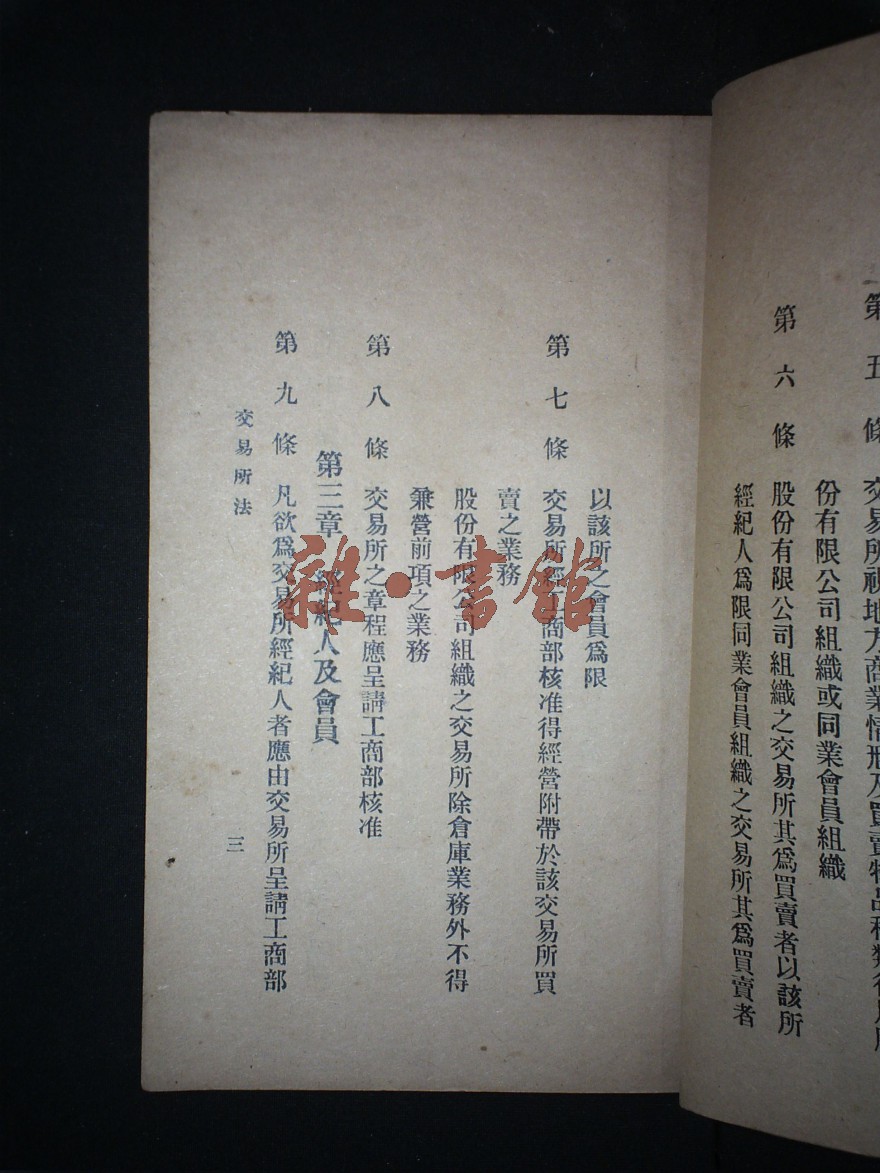 第五條 交易所視地方商業情形及買賣物品種類得用股
份有限公司組織或同業會員組織
第六條 股份有限公司組織之交易所其爲買賣者以該所
經紀人爲限同業會員組織之交易所其爲買賣者
以該所之會員爲限
第七條 交易所經工商部核准得經營附帶於該交易所買
賣之業務
股份有限公司組織之交易所除倉庫業務外不得
兼營前項之業務
第八條 交易所之章程應呈請工商部核准
第三章 經紀人及會員
第九條 凡欲爲交易所經紀人者應由交易所呈請工商部
交易所法
三
雜·書館